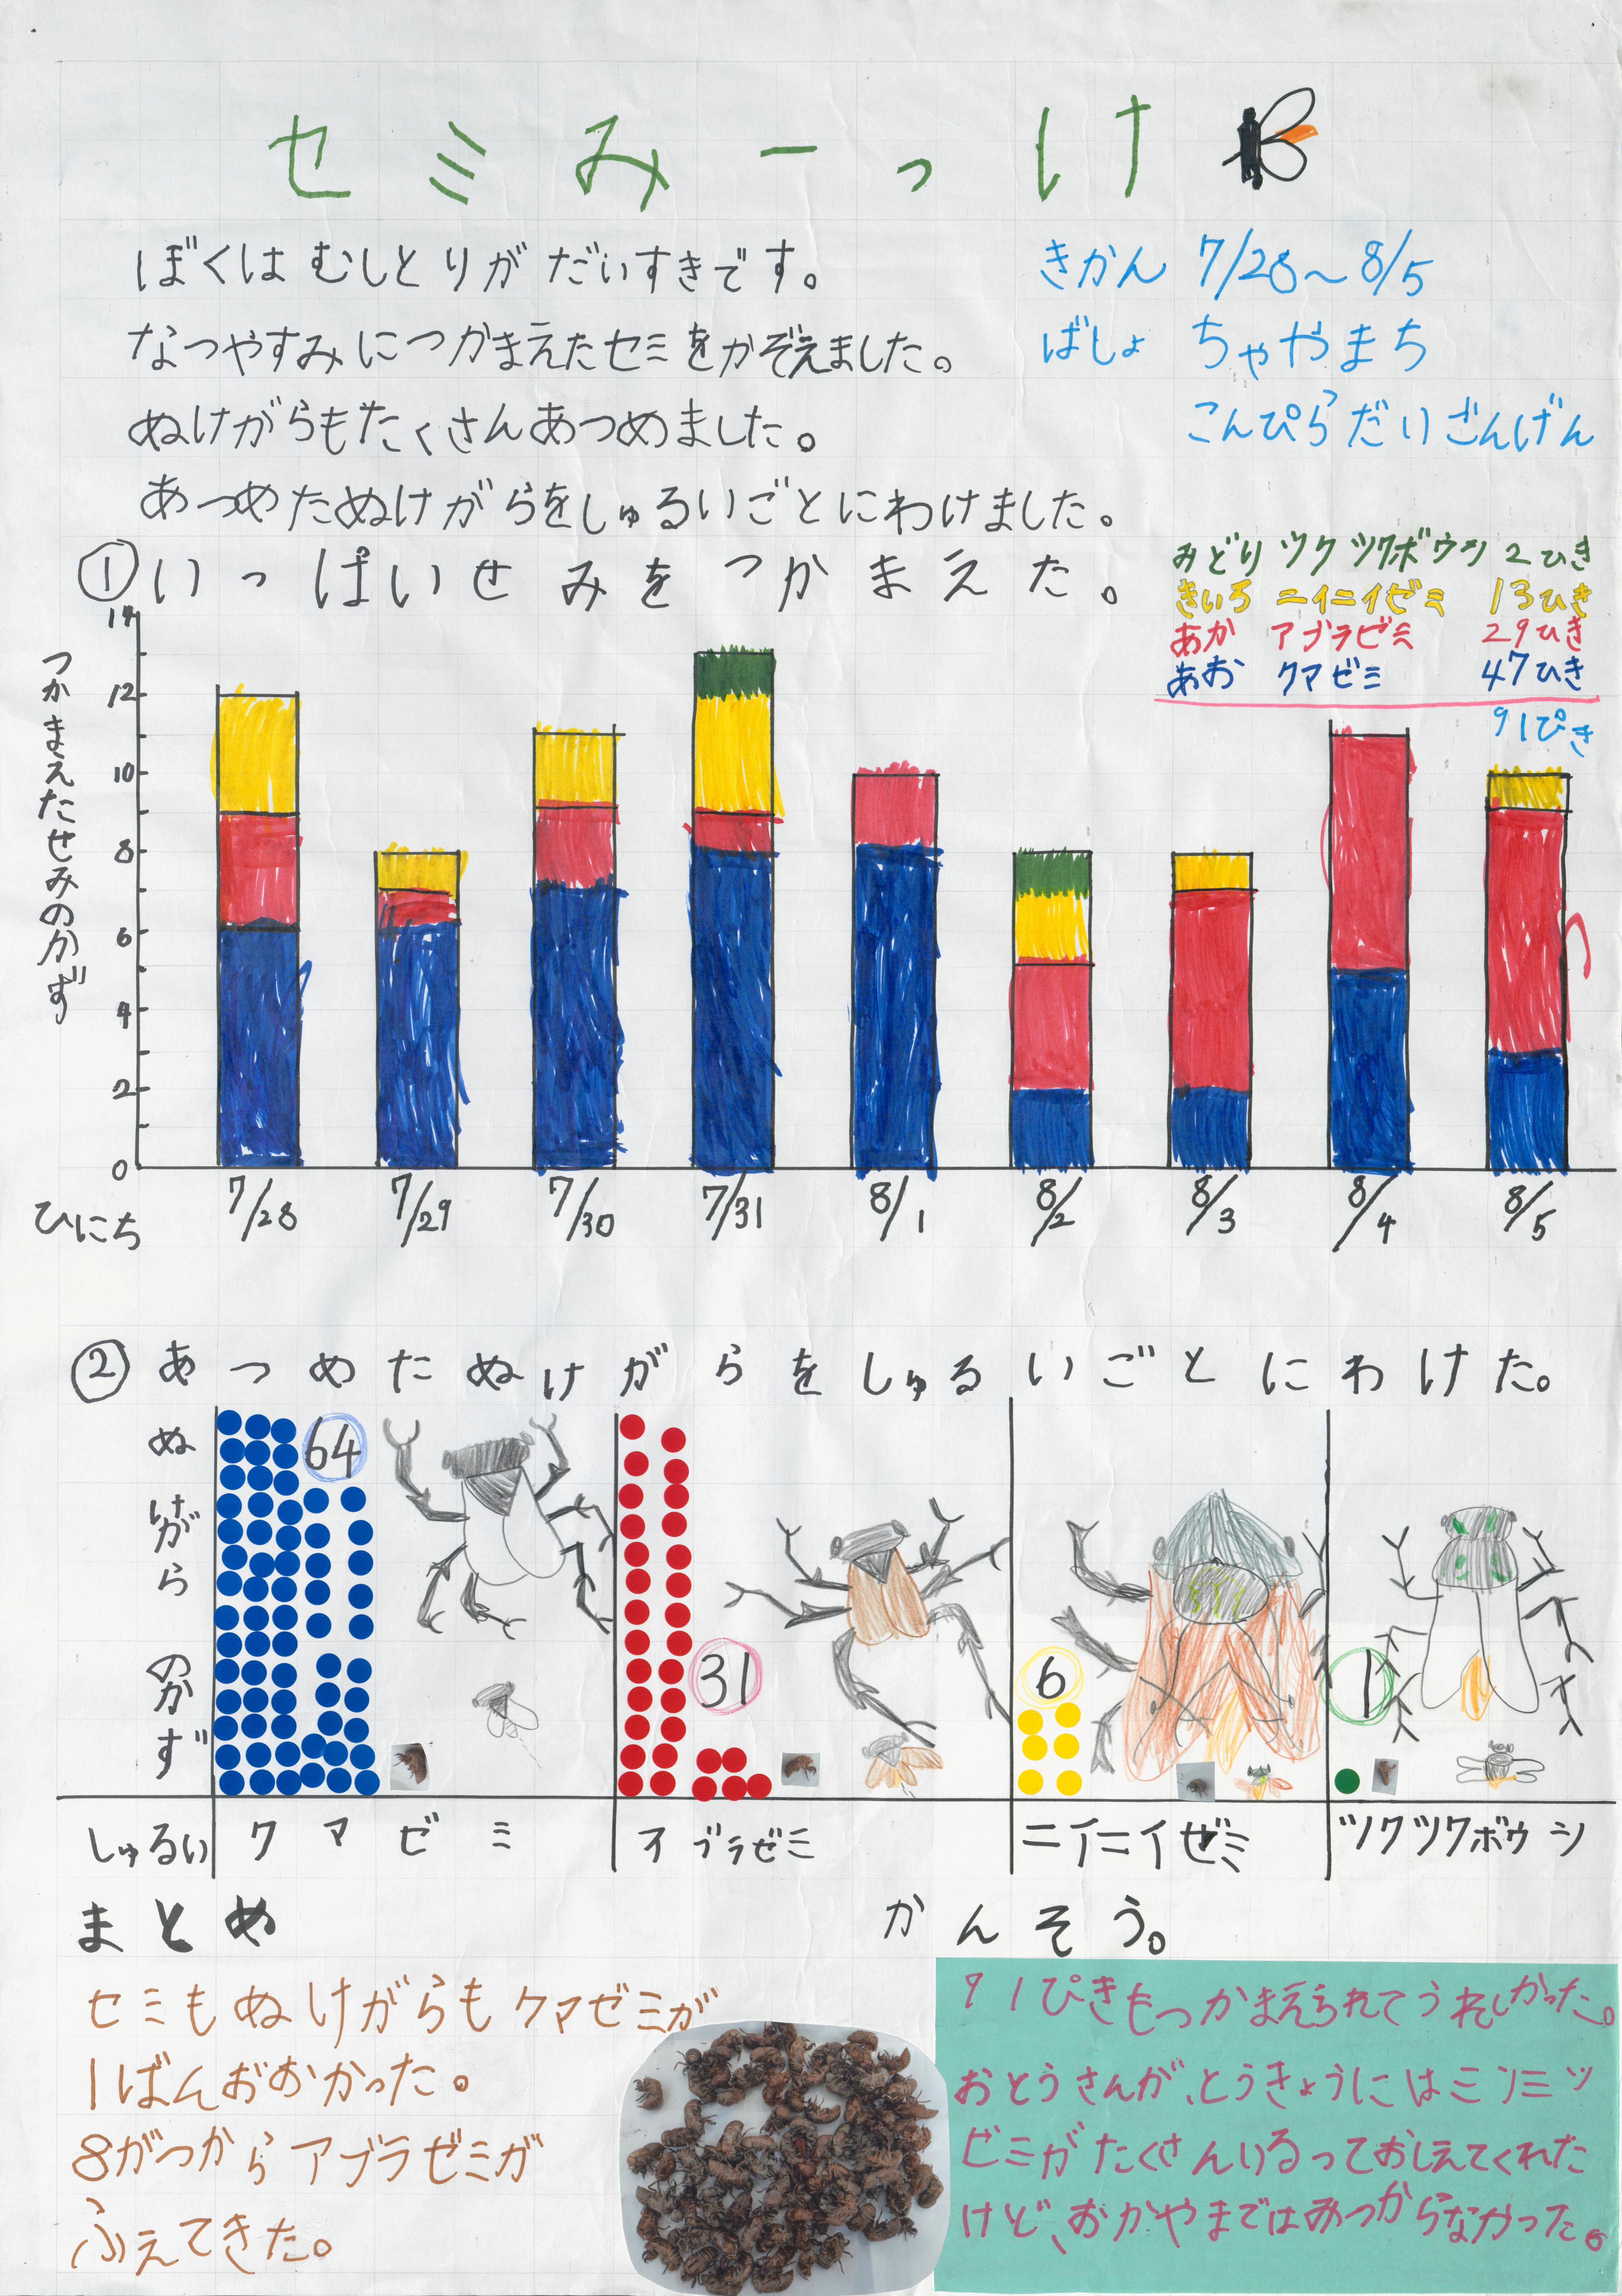 セミみーっけ
ぼくはむしとりがだいすきです。
なつやすみにつかまえたセミをかぞえました。
ぬけがらもたくさんあつめました。
あつめたぬけがらをしゅるいごとにわけました。
きかん 7/28～8/5
ばしょ ちゃやまち
こんぴらだいごんげん
①いっぱいせみをつかまえた。
みどり ツクツクボウシ 2ひき
きいろ ニイニイゼミ 13ひき
あか アブラゼミ 29ひき
あお クマゼミ 47ひき
91ぴき
つかまえたせみのかず
14
12
10
8
6
4
2
0
ひにち 7/28 7/29 7/30 7/31 8/1 8/2 8/3 8/4 8/5
②あつめたぬけがらをしゅるいごとにわけた。
ぬけがらのかず
64
31
6
1
しゅるい クマゼミ アブラゼミ ニイニイゼミ ツクツクボウシ
まとめ
セミもぬけがらもクマゼミが
1ばんおおかった。
8がつからアブラゼミが
ふえてきた。
かんそう。
91ぴきもつかまえられてうれしかった。
おとうさんが、とうきょうにはミンミン
ゼミがたくさんいるっておしえてくれた
けど、おかやまではみつからなかった。